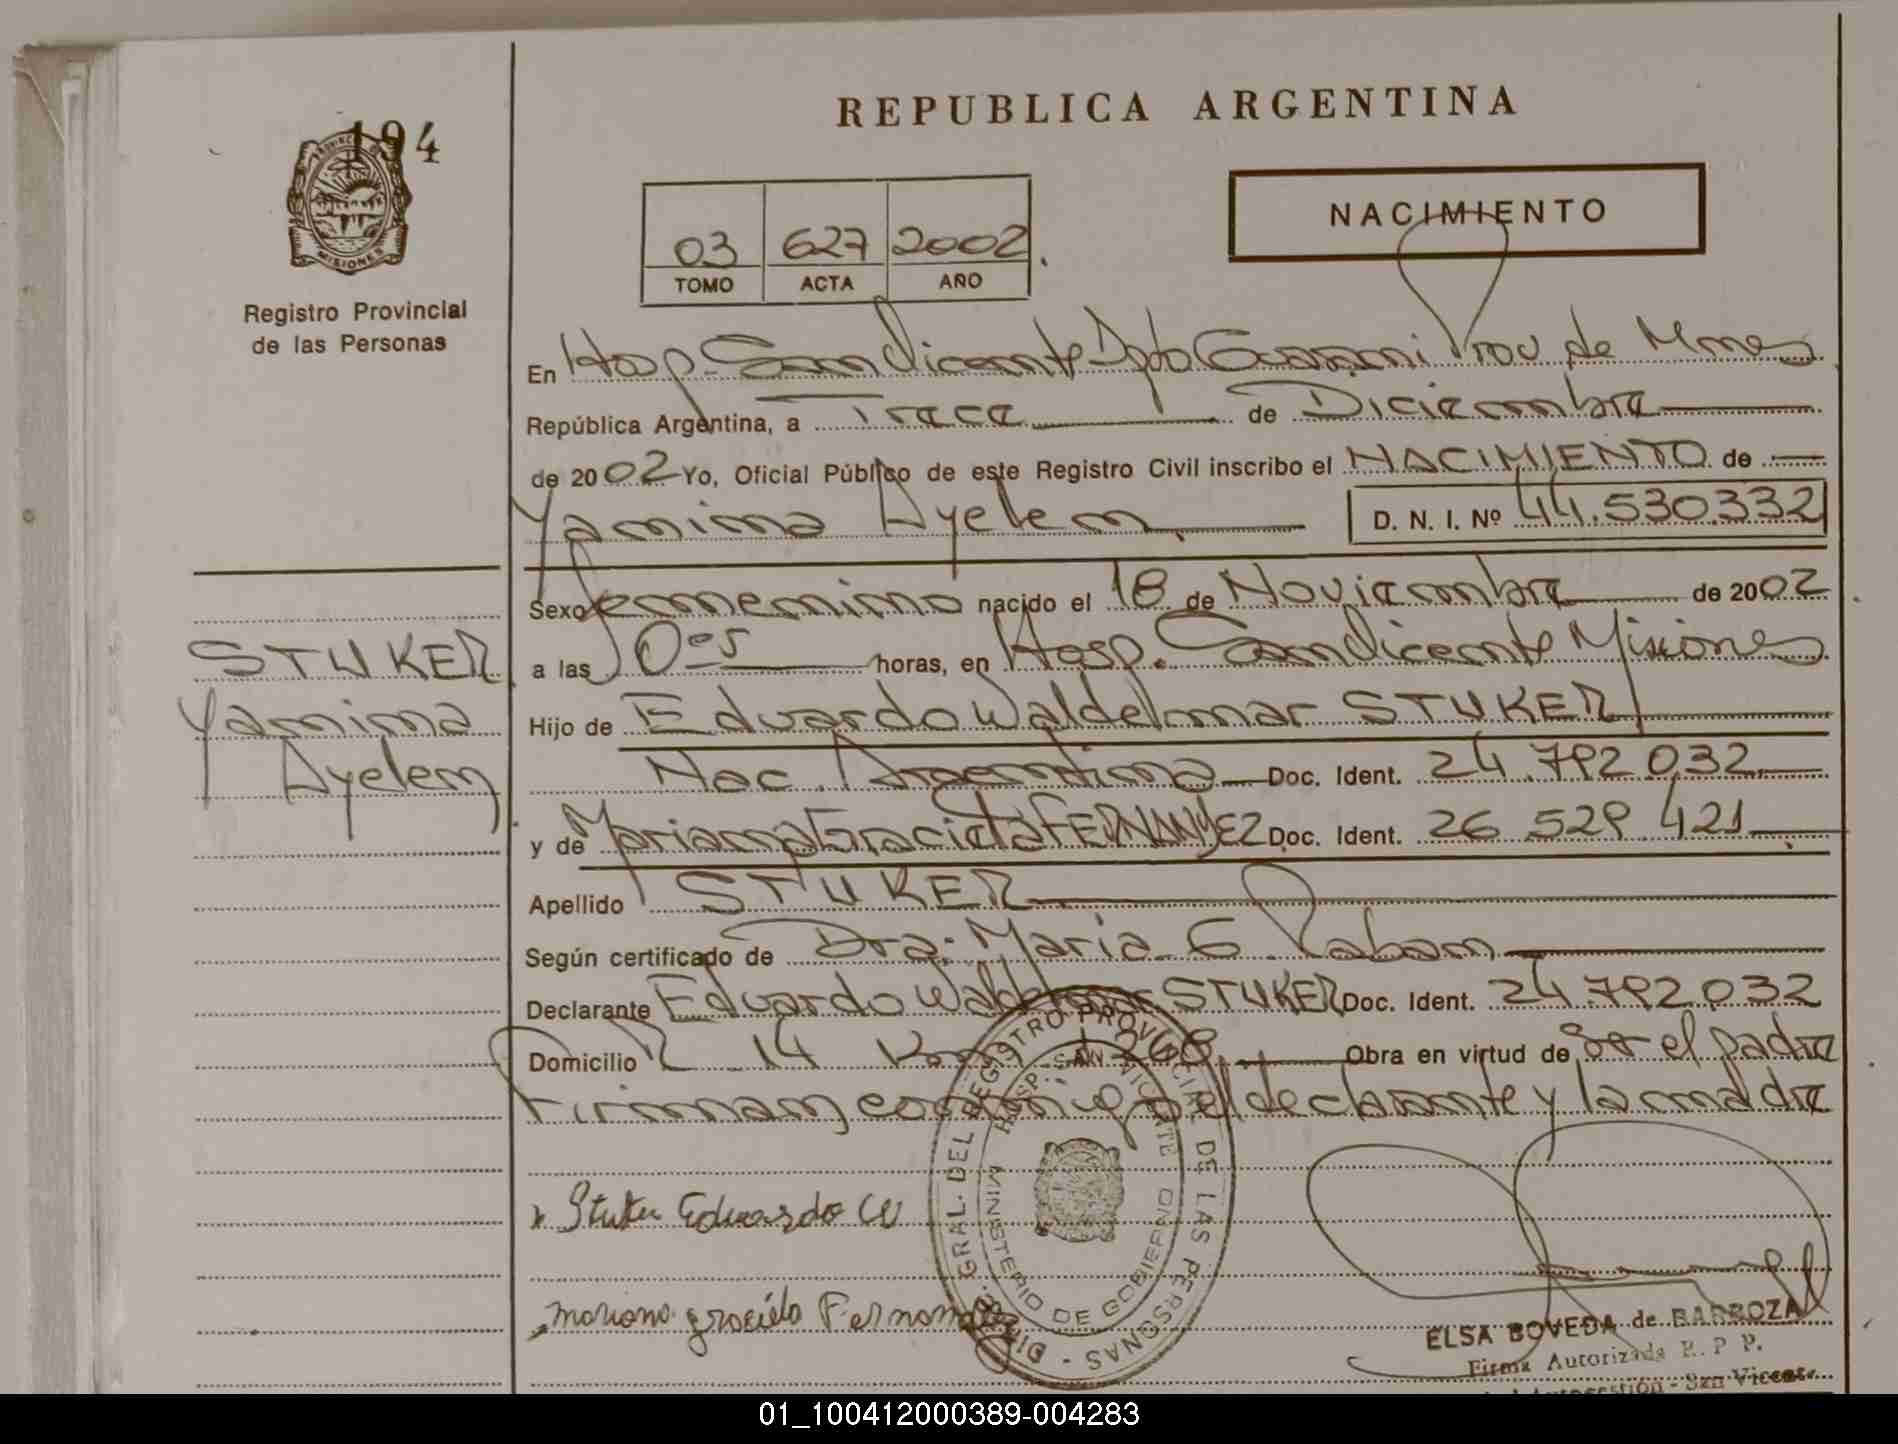 REPUBLICA ARGENTINA
194
PROVINCIA DE
MISIONES
Registro Provincial
de las Personas
03 627 2002.
TOMO ACTA AÑO
NACIMIENTO
En Hosp. San Vicente Dpto Guarani Prov de Mnes
República Argentina, a Trece de Diciembre
de 2002 Yo, Oficial Público de este Registro Civil inscribo el NACIMIENTO de
Yamima Ayelem D. N. I. Nº 44.530.332
Sexo femenino nacido el 18 de Noviembre de 2002
a las 10es horas, en Hosp. San Vicente Misiones
Hijo de Eduardo Waldelmar STUKER
Nac. Argentina Doc. Ident. 24.792.032
y de Mariana Graciela FERNANDEZ Doc. Ident. 26.529.421
Apellido STUKER
Según certificado de Dra. Maria G. Raban
Declarante Eduardo Waldelmar STUKER Doc. Ident. 24.792.032
Domicilio R 14 Km 1268 Obra en virtud de Ser el padre
Firman conmigo el declarante y la madre
STUKER
Yamima
Ayelem
x Stuker Eduardo W
Mariana graciela Fernandez
DIREC. GRAL. DEL REGISTRO PROVINCIAL DE LAS PERSONAS
HOSP. SAN VICENTE
MINISTERIO DE GOBIERNO
ELSA BOVEDA de BARBOZA
Firma Autorizada R. P P.
Autogestión - San Vicente
01_100412000389-004283